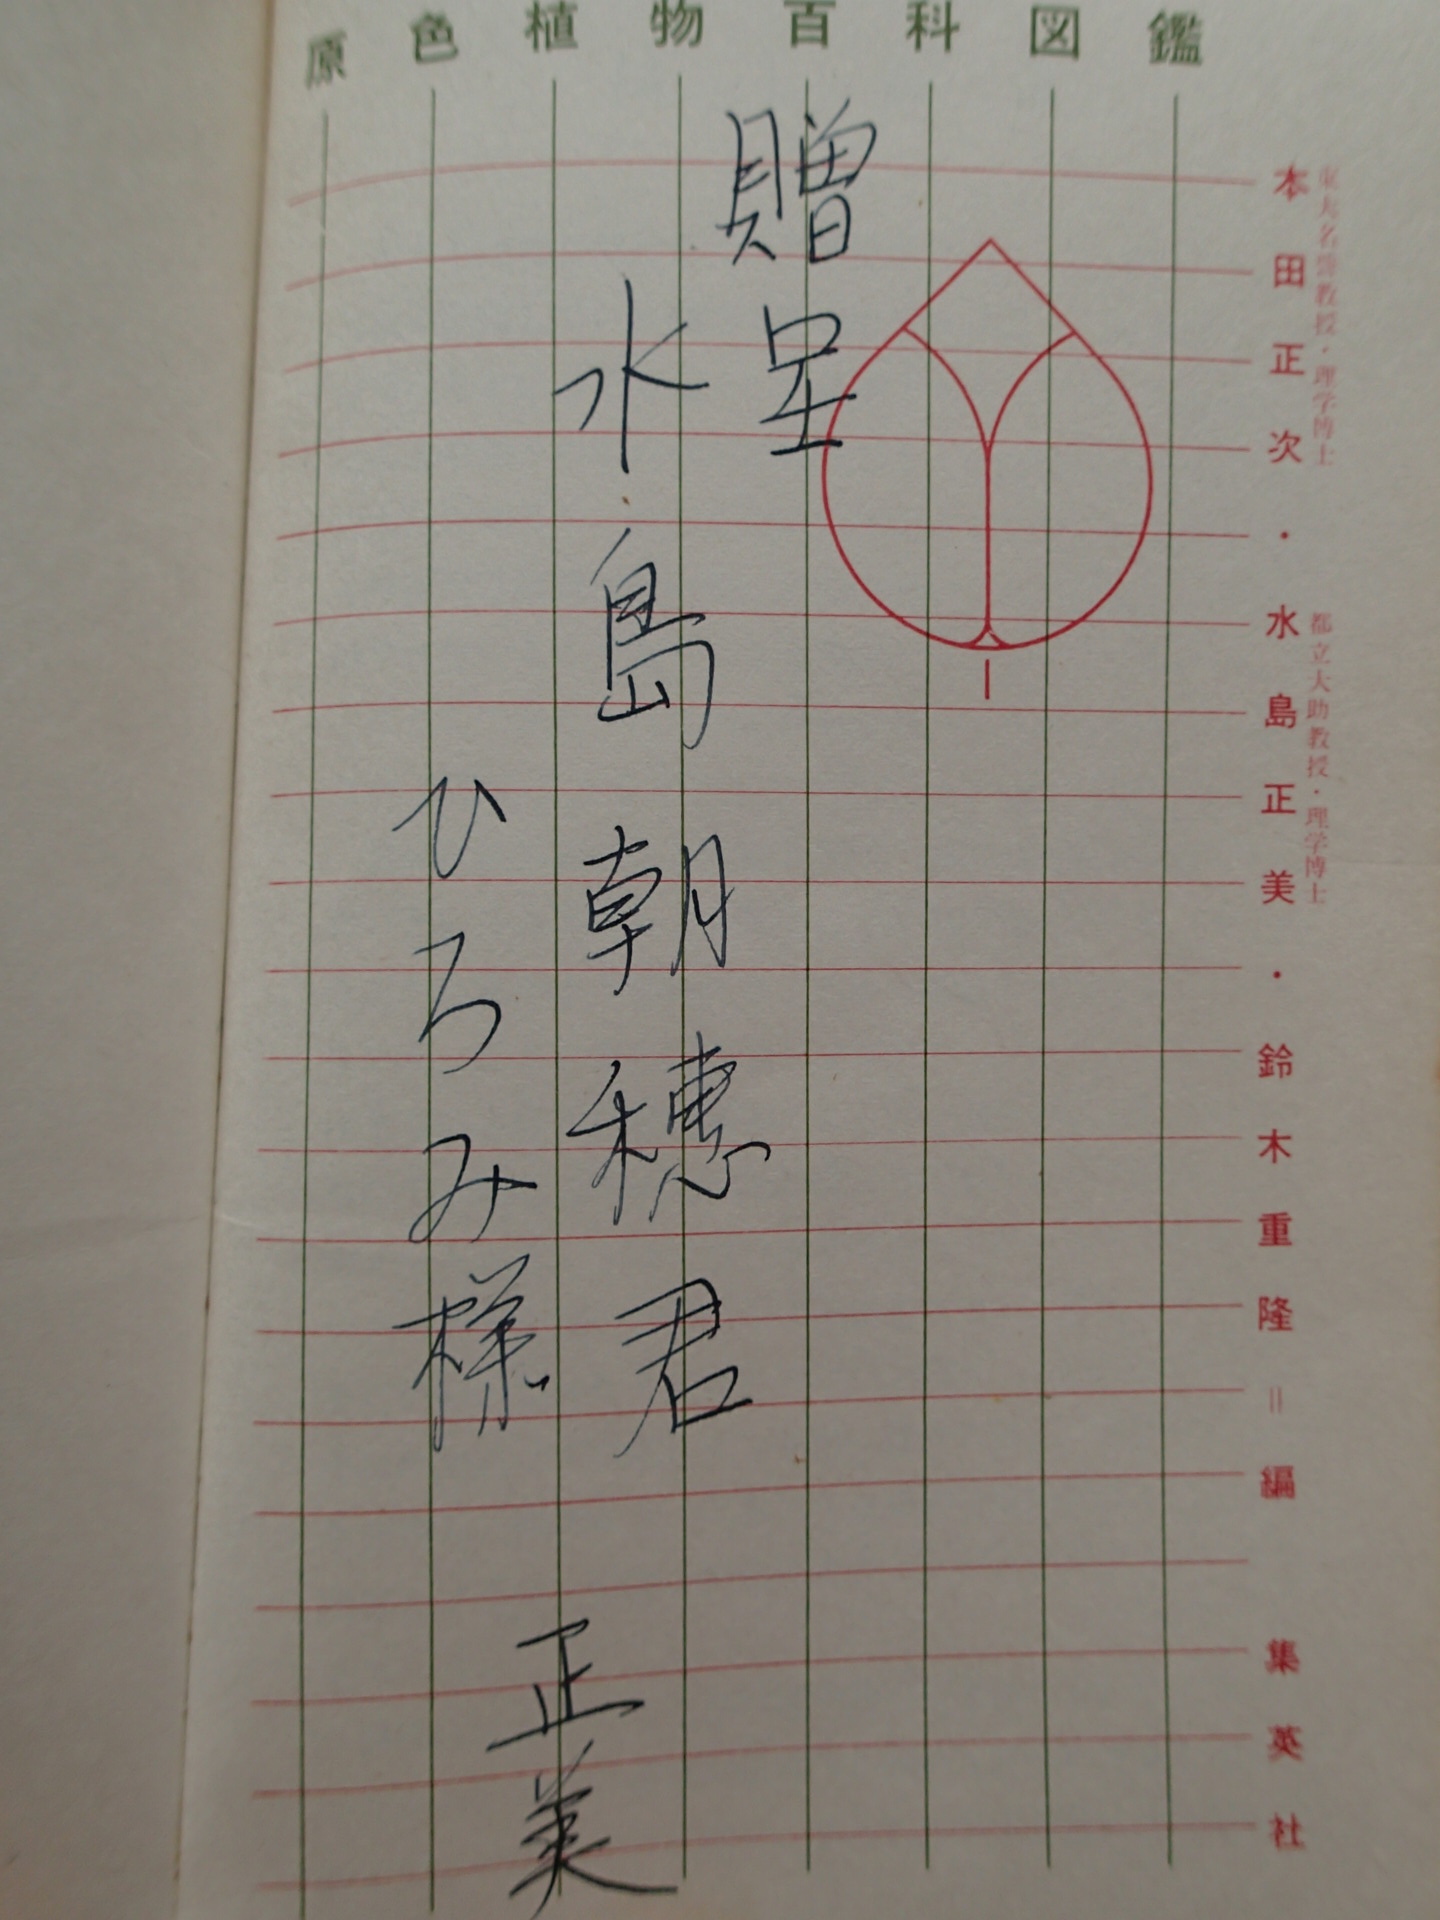 原色植物百科図鑑
東大名誉教授・理学博士
本田正次・水島正美・鈴木重隆=編 集英社
都立大助教授・理学博士
贈呈
水島朝穂君
ひろみ様
正美